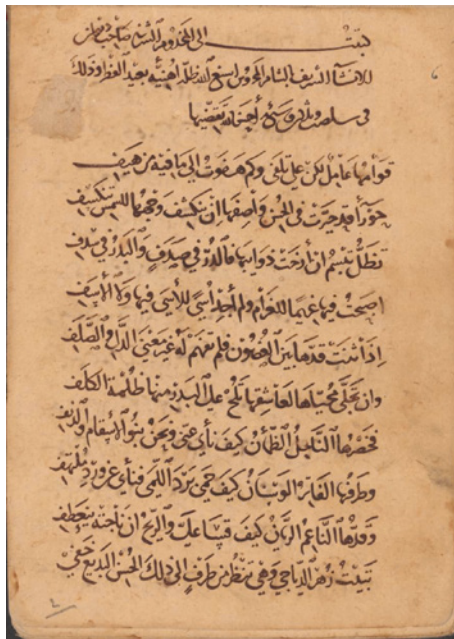 كتبت الى المخدوم الشيخ صاحب ديوان
الانشا الشريف بالشام المحروس اسبغ الله ظله اهنيه بعيد الفطر وذلك
في سلخ
قوامها عامل لكن على تلفى وكم هفوت الى ما فيه من هيف
حورا قد حيرت في الحسن واصفها ان ينكشف وجهها للشمس تنكسف
تظل تبسم ان ارخت ذوايبها فالدر في صدف والبدر في سدف
اصبحت فيها غريما للغرام ولم اجد اسى للاسى فيها ولا الاسف
اذا نثنت قدها بين الغصون فلم تفهم له غير معنى الدل والصلف
وان تجلى محياها لعاشقها تلح على البدر منها ظلمة الكلف
فخصرها الناحل الظمآن كيف نأى عني ونحن بنو الاسقام والدنف
وطرفها الفاتر الوسنان كيف حمى برد اللمى
وقدها الناعم الريان كيف قسا على والريح ان ناجته ينعطف
تبيت زهر الدياجي وهي تنظر من طرف الى ذلك الحسن البديع خفي